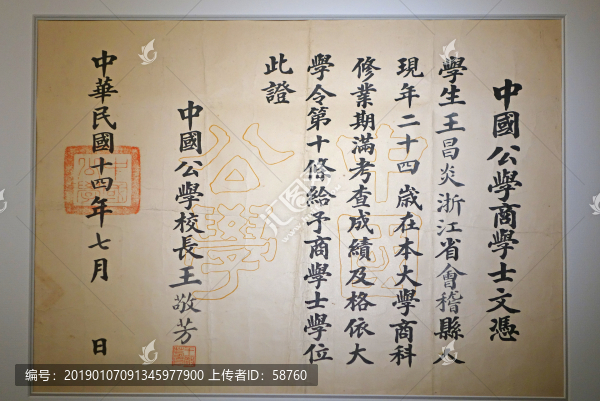 中國公學商學士文憑
學生王昌炎浙江省會稽縣人
現年二十四歲在本大學商科
修業期滿考查成績及格依大
學令第十條給予商學士學位
此證
中國公學校長王敬芳
中華民國十四年七月 日
中國
公學
编号：20190107091345977900 上传者ID：58760